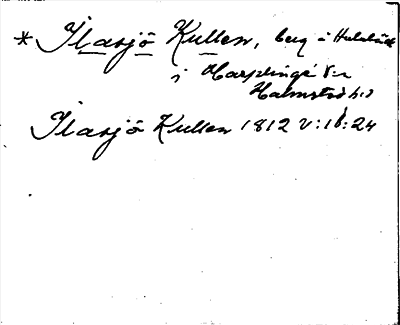 * Ilasjö Kullen, berg i Hulabäck
i Harplinge sn
Halmstad hd
Ilasjö Kullen 1812 V:16:24